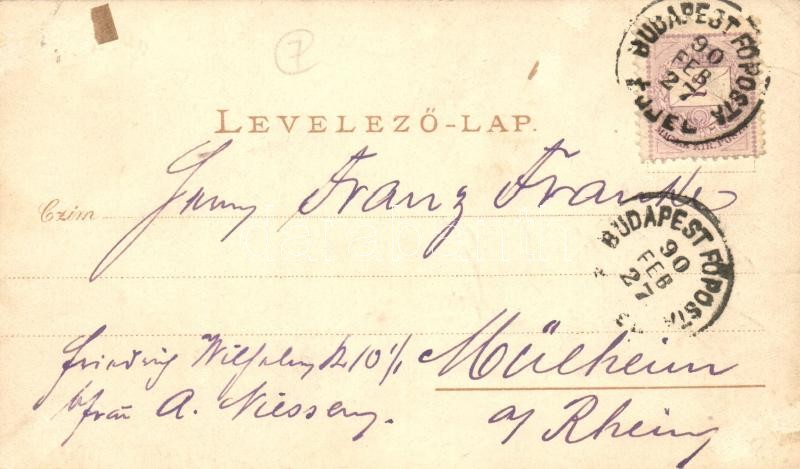 7
BUDAPEST FŐPOSTA
90
FEB
27
ÉJJEL
MAGY. KIR. POSTA
LEVELEZŐ-LAP.
Czim
Franz Franke
BUDAPEST FŐPOSTA
90
FEB
27
Friedrich Wilhelm 10
Mülheim
b/ Frau A. Niessen.
a/ Rhein